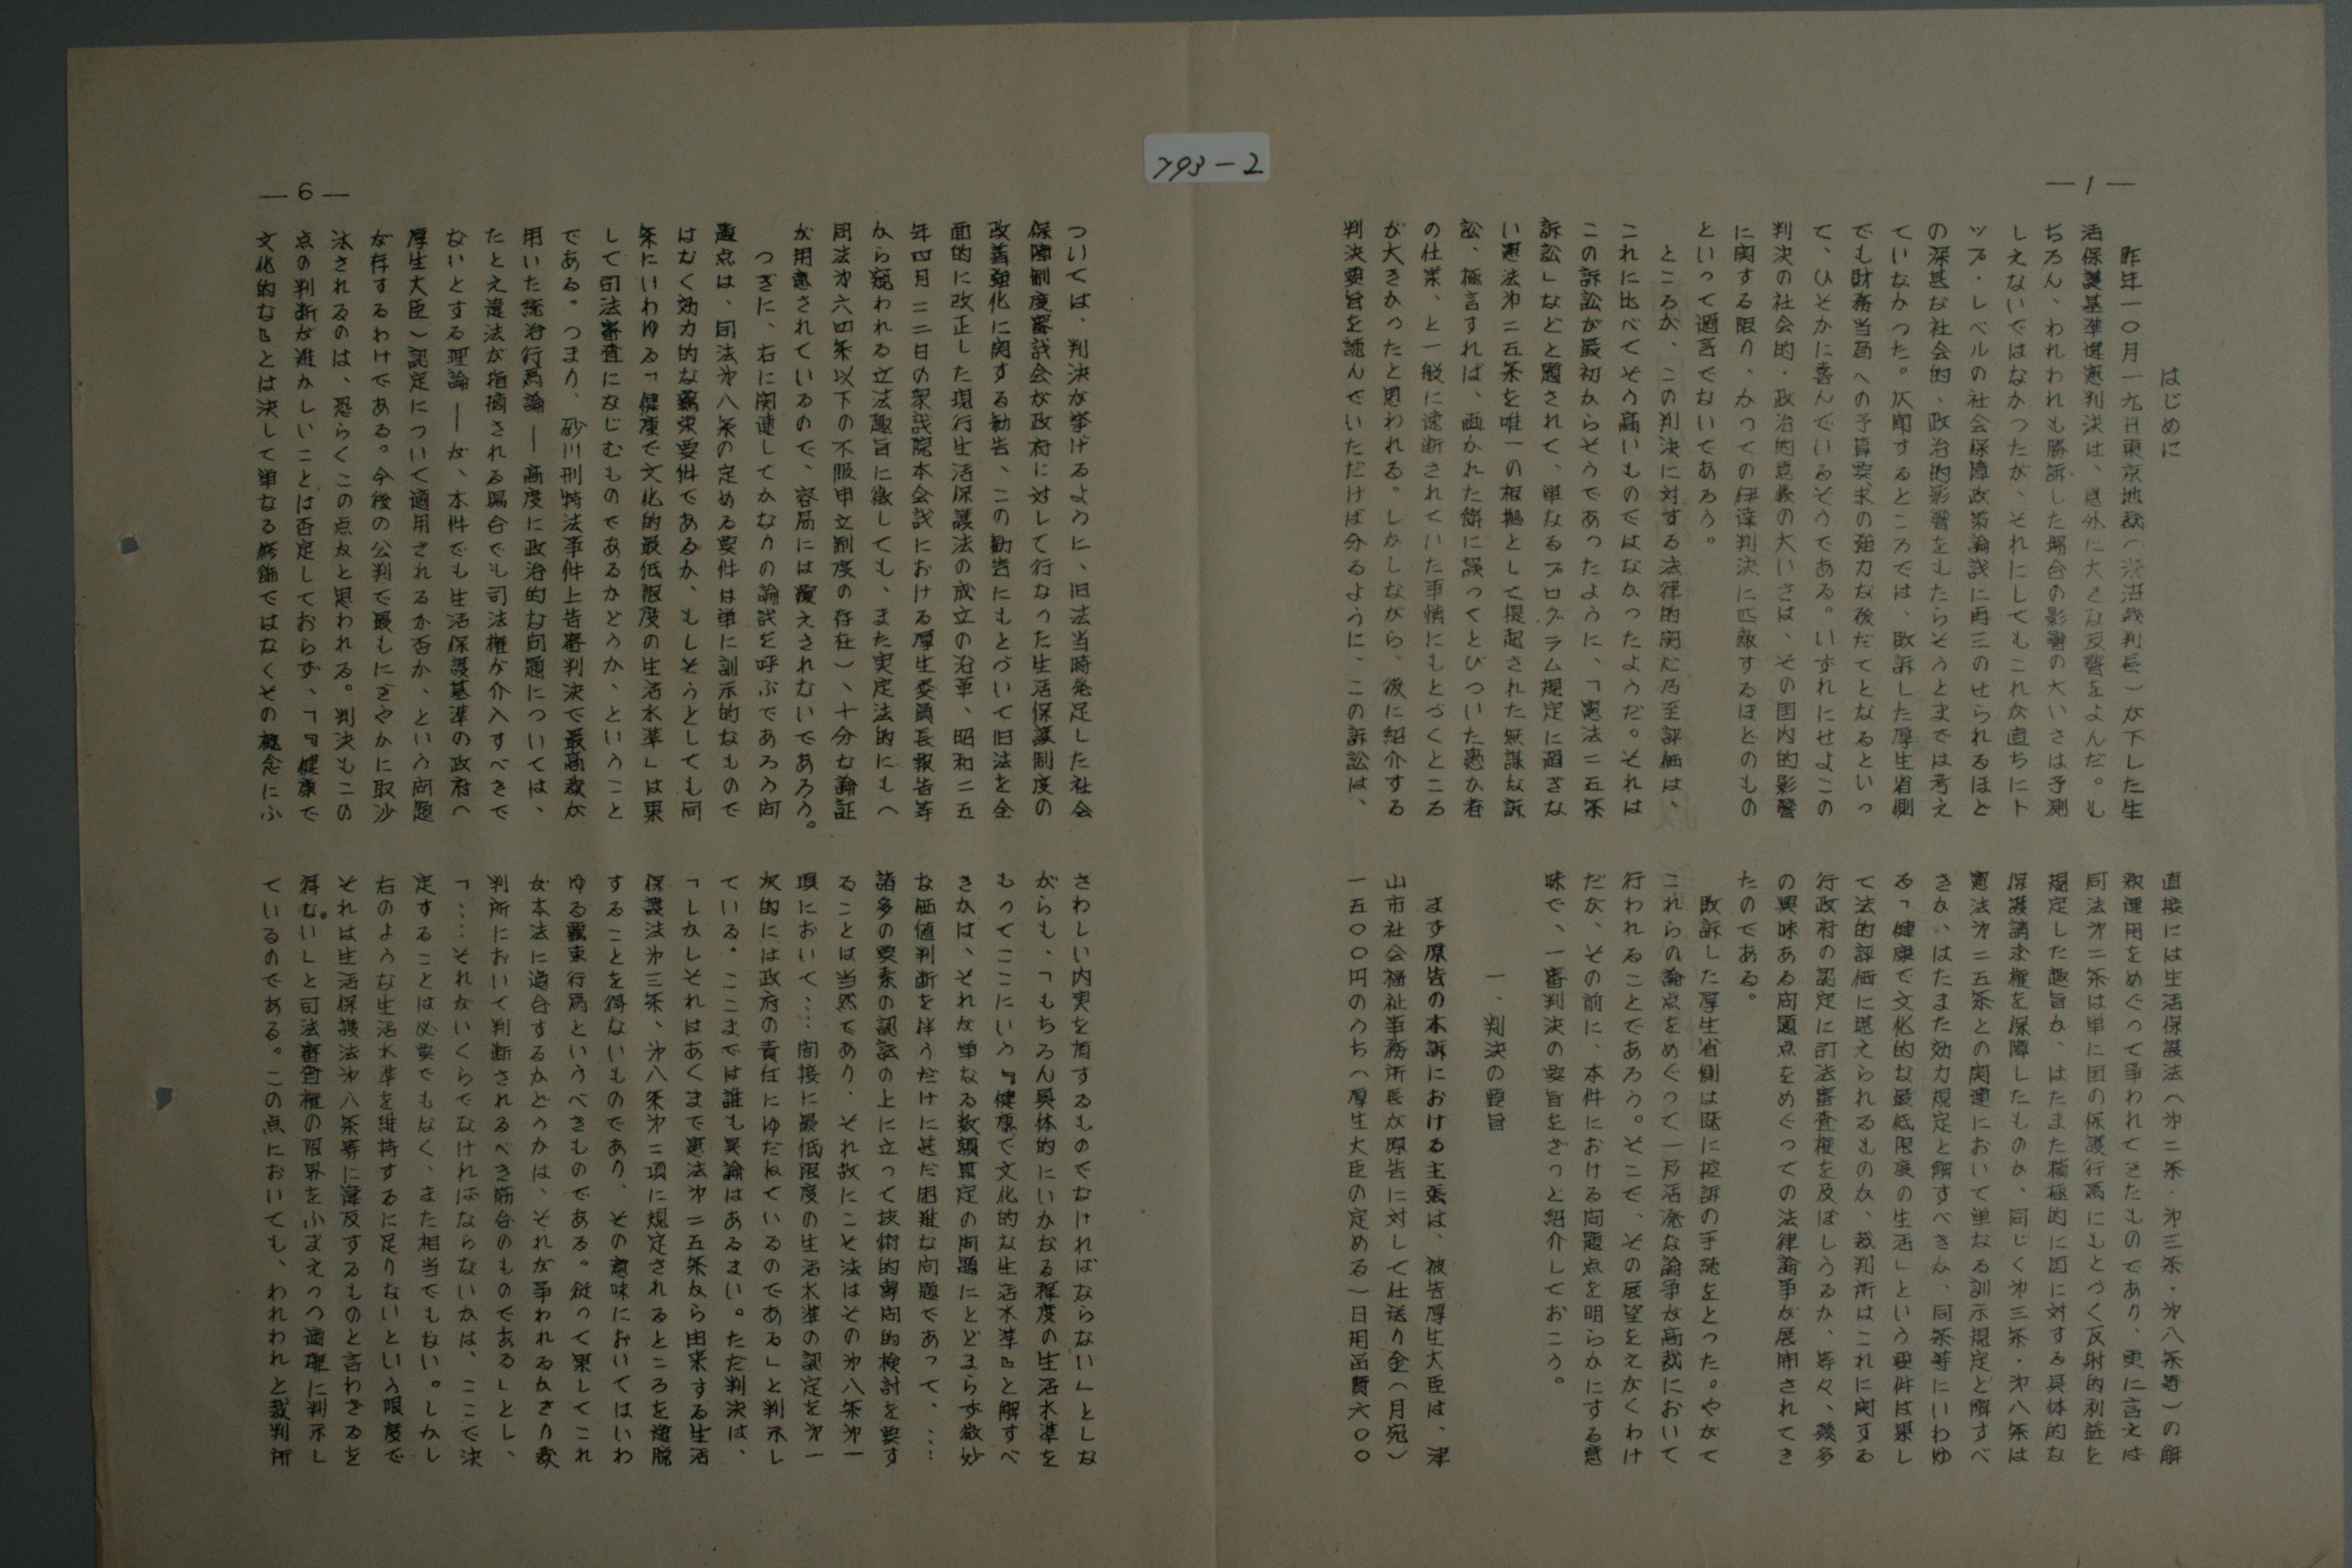 793-2
—1—
はじめに
昨年一〇月一九日東京地裁(浅沼裁判長)が下した生
活保護基準違憲判決は、意外に大きな反響をよんだ。も
ちろん、われわれも勝訴した場合の影響の大いさは予測
しえないではなかつたが、それにしてもこれが直ちにト
ップ・レベルの社会保障政策論議に再三のせられるほど
の深甚な社会的、政治的影響をもたらそうとまでは考え
ていなかつた。仄聞するところでは、敗訴した厚生省側
でも財務当局への予算要求の強力な後だてとなるといっ
て、ひそかに喜んでいるそうである。いずれにせよこの
判決の社会的・政治的意義の大いさは、その国内的影響
に関する限り、かつての伊達判決に匹敵するほどのもの
といって過言でないであろう。
ところが、この判決に対する法律的関心乃至評価は、
これに比べてそう高いものではなかったようだ。それは
この訴訟が最初からそうであったように、「憲法二五条
訴訟」などと題されて、単なるプログラム規定に過ぎな
い憲法㐧二五条を唯一の根拠として提起された無謀な訴
訟、極言すれば、画かれた餅に誤ってとびついた愚か者
の仕業、と一般に速断されていた事情にもとづくところ
が大きかったと思われる。しかしながら、後に紹介する
判決要旨を読んでいただけば分るように、この訴訟は、
直接には生活保護法(㐧二条・㐧三条・㐧八条等)の解
釈運用をめぐって争われてきたものであり、更に言えば
同法㐧二条は単に国の保護行為にもとづく反射的利益を
規定した趣旨か、はたまた積極的に国に対する具体的な
保護請求権を保障したものか、同じく㐧三条・㐧八条は
憲法㐧二五条との関連において単なる訓示規定と解すべ
きか、はたまた効力規定と解すべきか、同条等にいわゆ
る「健康で文化的な最低限度の生活」という要件は果し
て法的評価に堪えられるものか、裁判所はこれに関する
行政府の認定に訂法審査権を及ぼしうるか、等々、幾多
の興味ある問題点をめぐっての法律論争が展開されてき
たのである。
敗訴した厚生省側は既に控訴の手続をとった。やがて
これらの論点をめぐって一段活発な論争が高裁において
行われることであろう。そこで、その展望をえがくわけ
だが、その前に、本件における問題点を明らかにする意
味で、一審判決の要旨をざっと紹介しておこう。
一、判決の要旨
まず原告の本訴における主張は、被告厚生大臣は、津
山市社会福祉事務所長が原告に対して仕送り金(月宛)
一五〇〇円のうち(厚生大臣の定める)日用品費六〇〇
—6—
ついては、判決が挙げるように、旧法当時発足した社会
保障制度審議会が政府に対して行なった生活保護制度の
改善強化に関する勧告、この勧告にもとづいて旧法を全
面的に改正した現行生活保護法の成立の沿革、昭和二五
年四月二二日の衆議院本会議における厚生委員長報告等
から窺われる立法趣旨に徴しても、また実定法的にも(
同法㐧六四条以下の不服申立制度の存在)、十分な論証
が用意されているので、容易には覆えされないであろう。
つぎに、右に関連してかなりの論議を呼ぶであろう問
題点は、同法㐧八条の定める要件は単に訓示的なもので
はなく効力的な羈束要件であるか、もしそうとしても同
条にいわゆる「健康で文化的最低限度の生活水準」は果
して司法審査になじむものであるかどうか、ということ
である。つまり、砂川刑特法事件上告審判決で最高裁が
用いた統治行為論――高度に政治的な問題については、
たとえ違法が指摘される場合でも司法権が介入すべきで
ないとする理論――が、本件でも生活保護基準の政府(
厚生大臣)認定について適用されるか否か、という問題
が存するわけである。今後の公判で最もにぎやかに取沙
汰されるのは、恐らくこの点かと思われる。判決もこの
点の判断が難かしいことは否定しておらず、「『健康で
文化的な』とは決して単なる修飾ではなくその概念にふ
さわしい内実を有するものでなければならない」としな
がらも、「もちろん具体的にいかなる程度の生活水準を
もってここにいう『健康で文化的な生活水準』と解すべ
きかは、それが単なる数額算定の問題にとどまらず微妙
な価値判断を伴うだけに甚だ困難な問題であって、……
諸多の要素の認識の上に立って技術的専門的検討を要す
ることは当然であり、それ故にこそ法はその㐧八条㐧一
項において……間接に最低限度の生活水準の認定を㐧一
次的には政府の責任にゆだねているのである」と判示し
ている。ここまでは誰も異論はあるまい。ただ判決は、
「しかしそれはあくまで憲法㐧二五条から由来する生活
保護法㐧三条、㐧八条㐧二項に規定されるところを逸脱
することを得ないものであり、その意味においてはいわ
ゆる羈束行為というべきものである。従って果してこれ
が本法に適合するかどうかは、それが争われるかぎり裁
判所において判断されるべき筋合のものである」とし、
「……それがいくらでなければならないかは、ここで決
定することは必要でもなく、また相当でもない。しかし
右のような生活水準を維持するに足りないという限度で
それは生活保護法㐧八条等に違反するものと言わざるを
得ない。」と司法審査権の限界をふまえつつ適確に判示し
ているのである。この点においても、われわれと裁判所